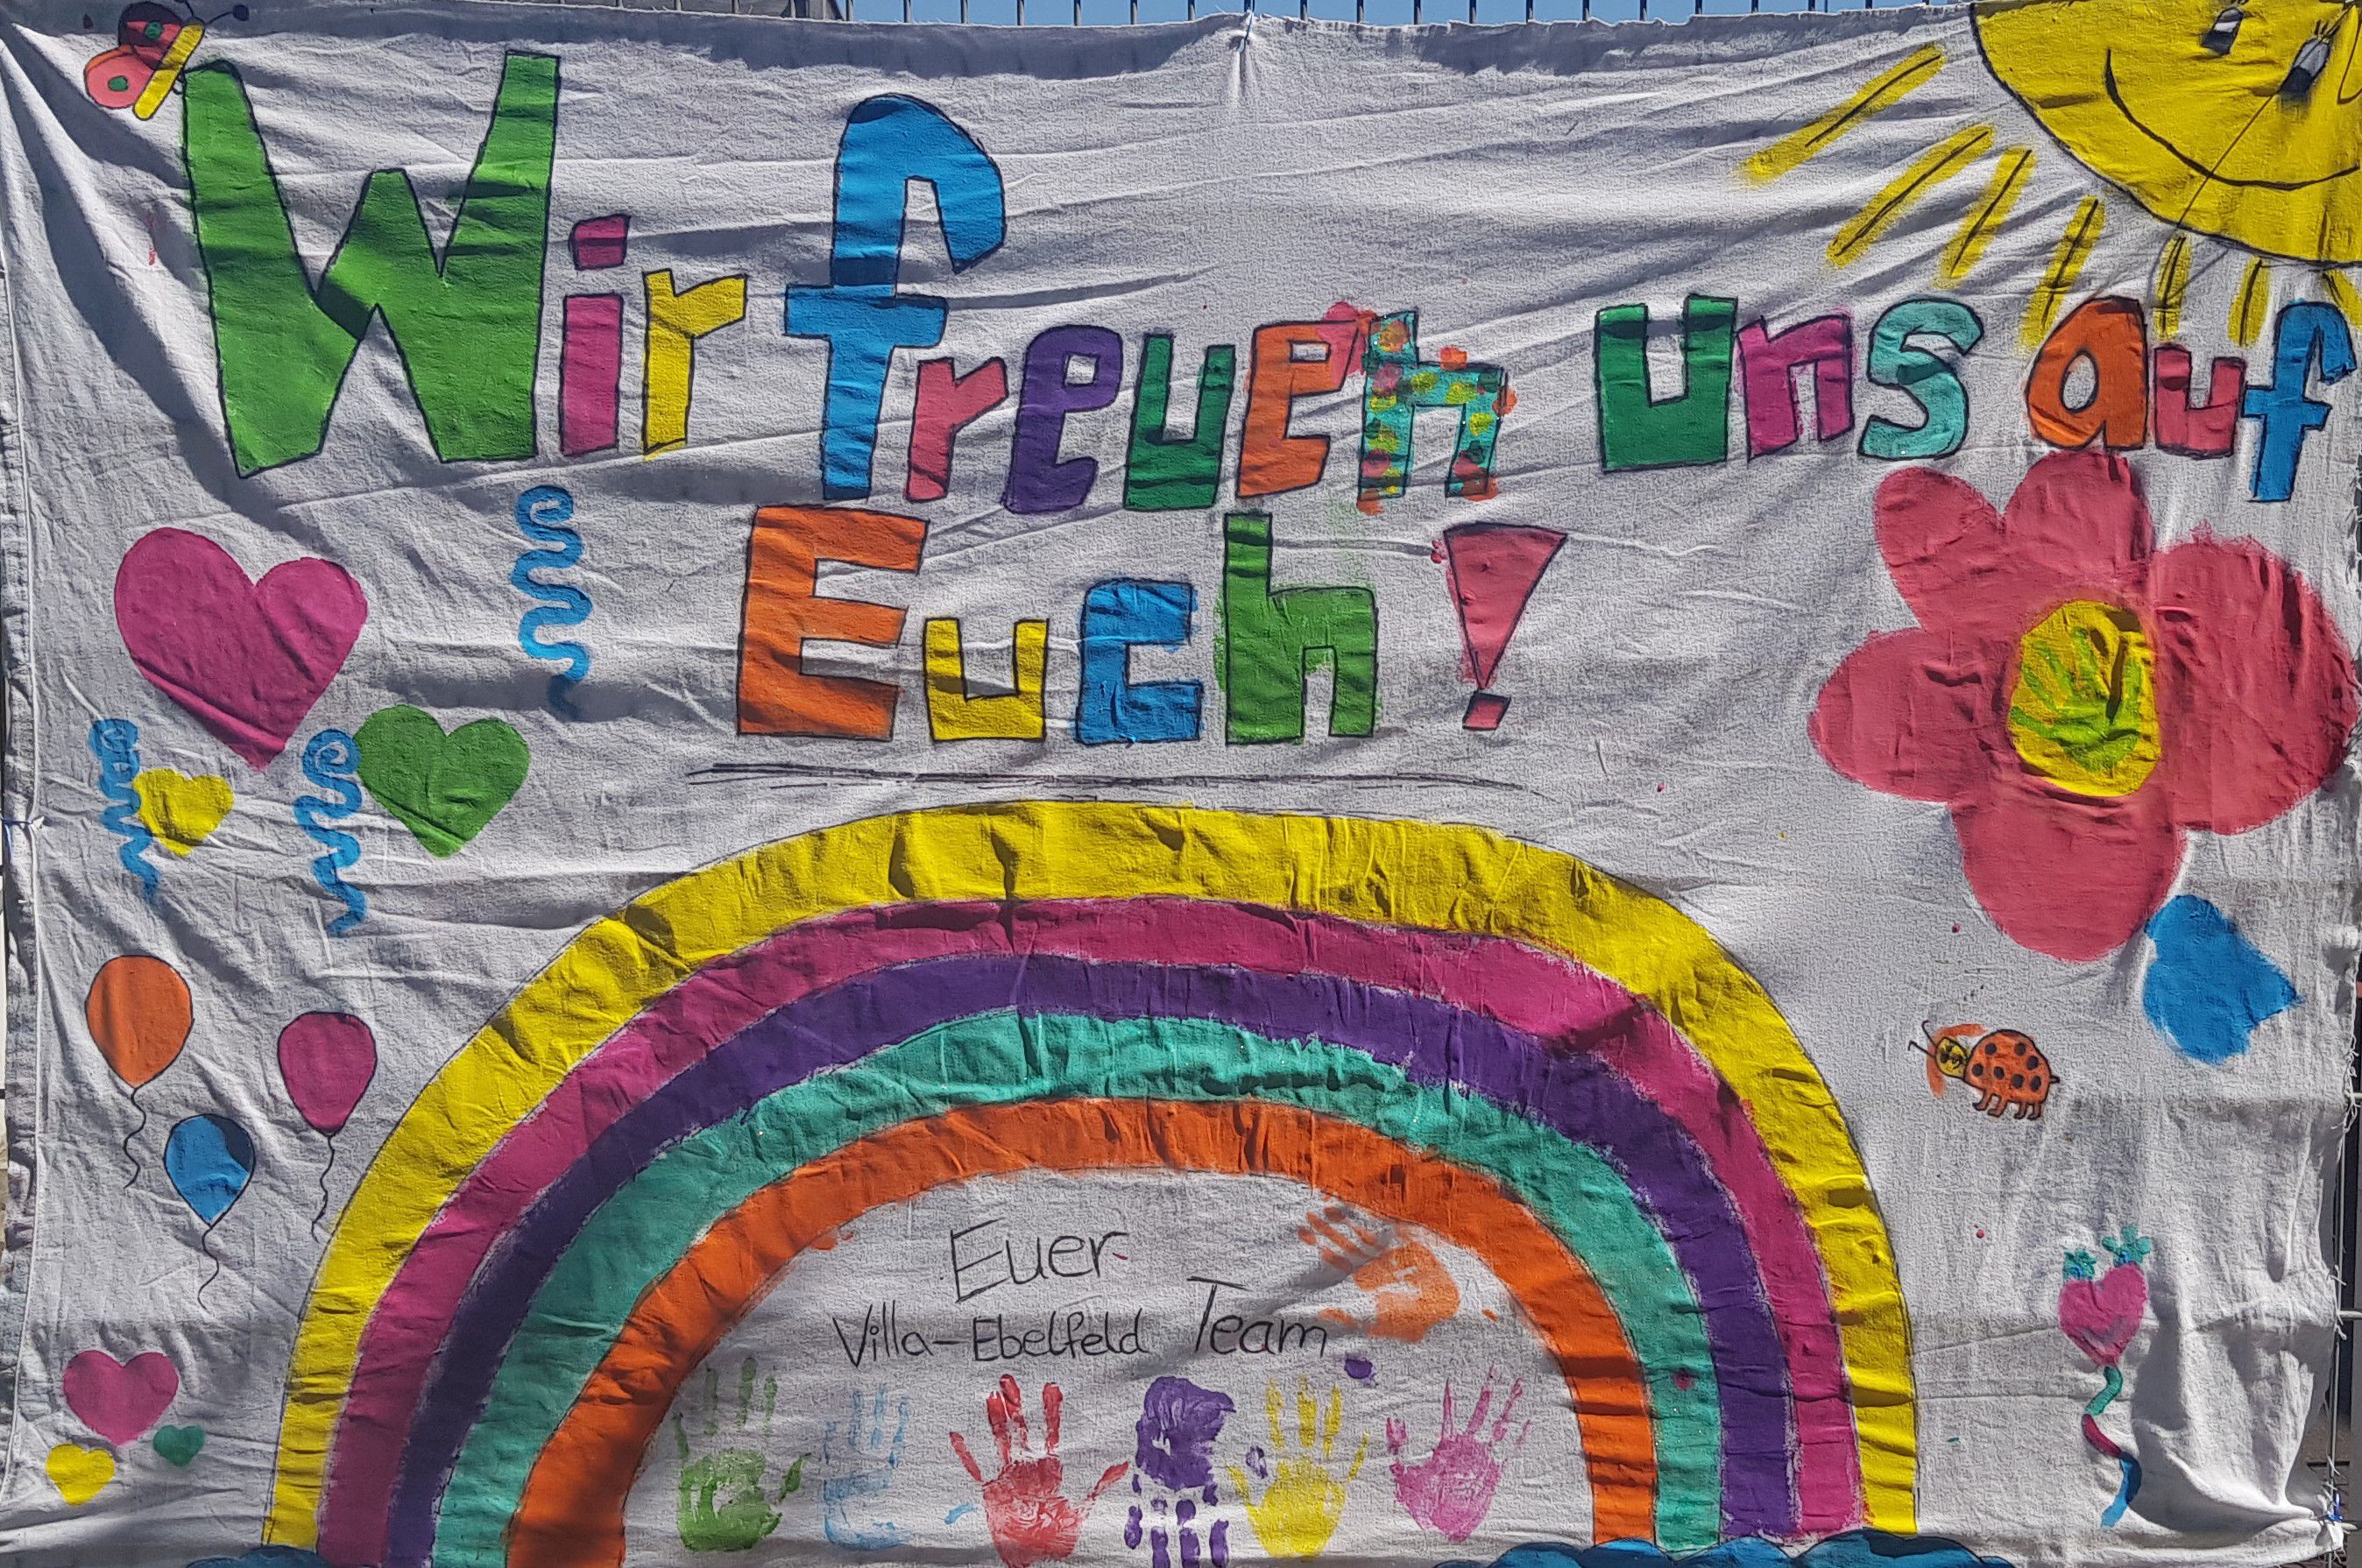 Wir freuen uns auf
Euch!
Euer
Villa-Ebelfeld Team